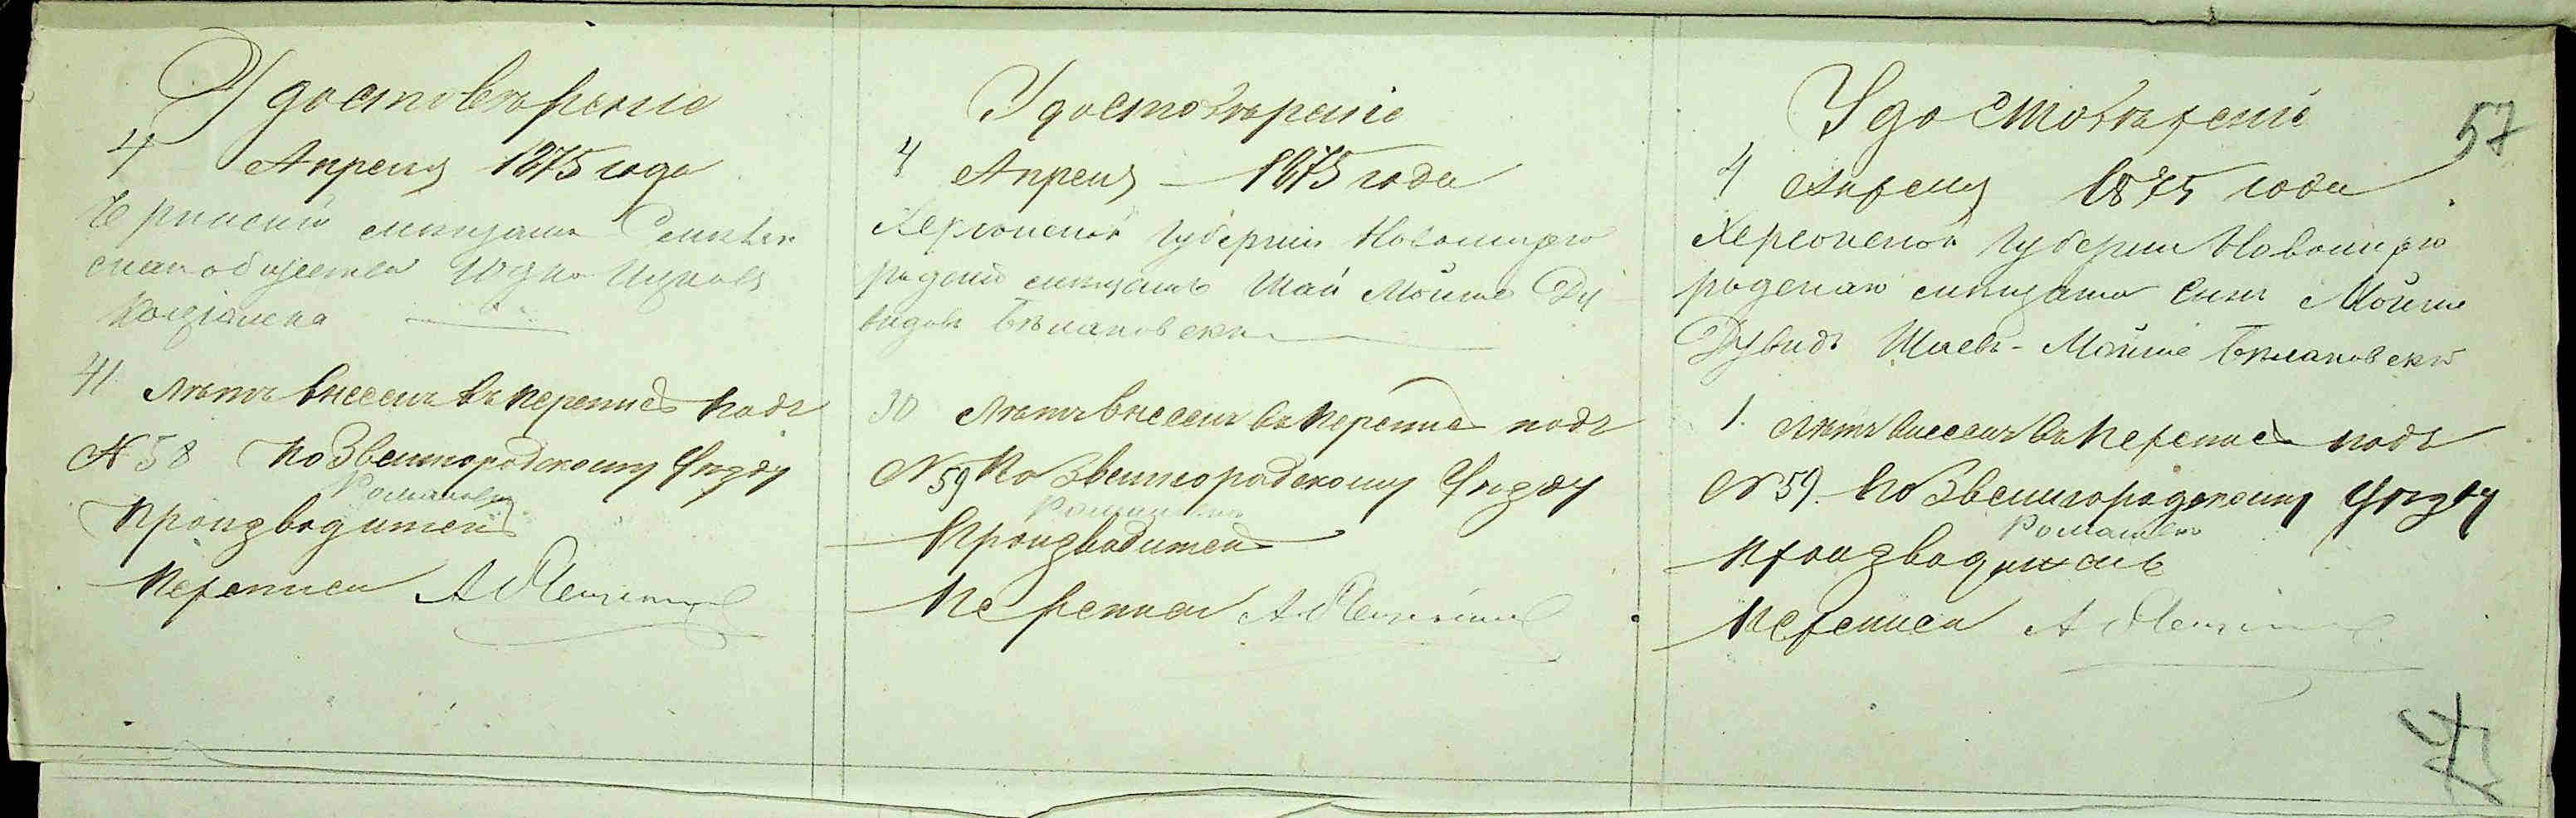 Удостоверенie
4 Апреля 1875 года
мещанин
скаго общества Ицков
41 лѣтъ внесенъ въ перепись подъ
№ 58 по Звенигородскому уѣзду
Романовка
Производитель
переписи А.
Удостовѣренiе
4 Апреля — 1875 года
Херсонской губернiи Новомирго
родскiй мещанинъ Шая Мойше Ду
видовъ Бѣлановскiй
30 лѣтъ внесенъ въ перепись подъ
№ 59 по Звенигородскому уѣзду
Производитель
переписи А.
Удостовѣренiе
57
4 Апреля 1875 года
Херсонской губернiи Новомирго
родскаго мещанина сынъ Мойше
Дувидъ Шаевъ-Мойше Бѣлановскiй
1. лѣтъ внесенъ въ перепись подъ
№ 59. по Звенигородскому уѣзду
Производитель
переписи А.